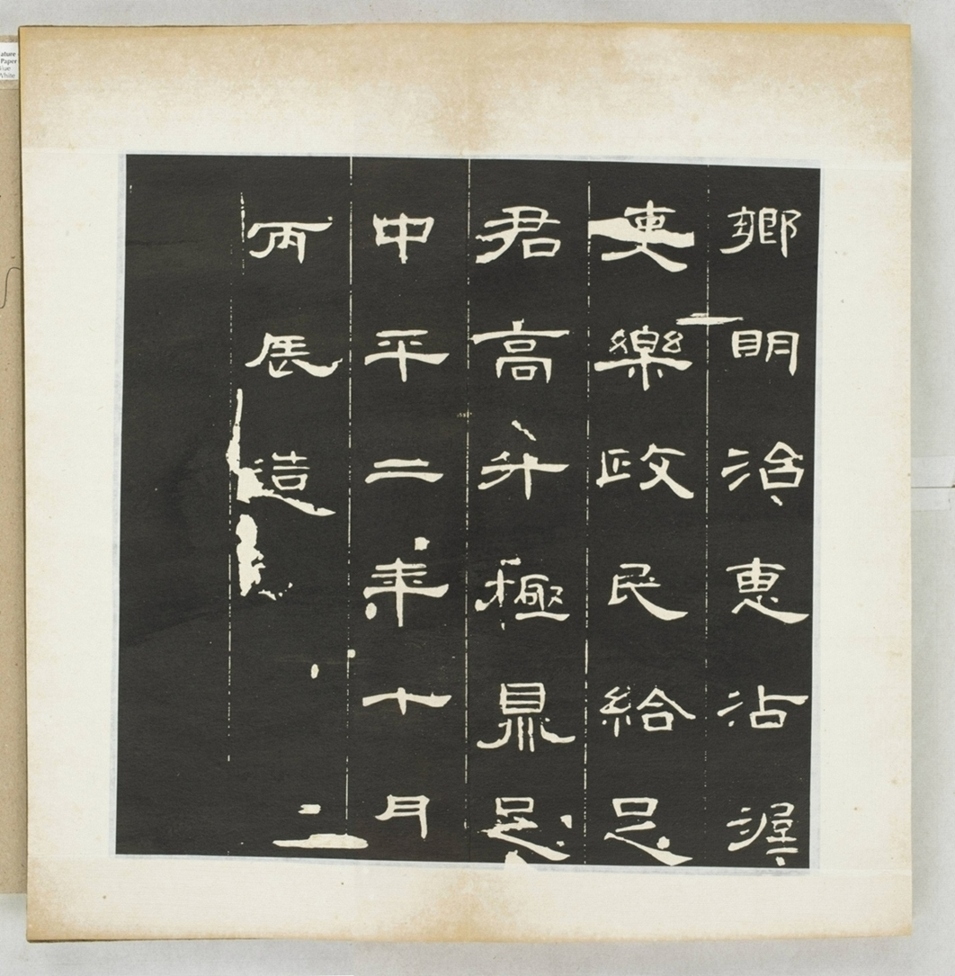 鄉明治惠沾渥
吏樂政民給足
君高升極鼎足
中平二年十月
丙辰造
Paper
White